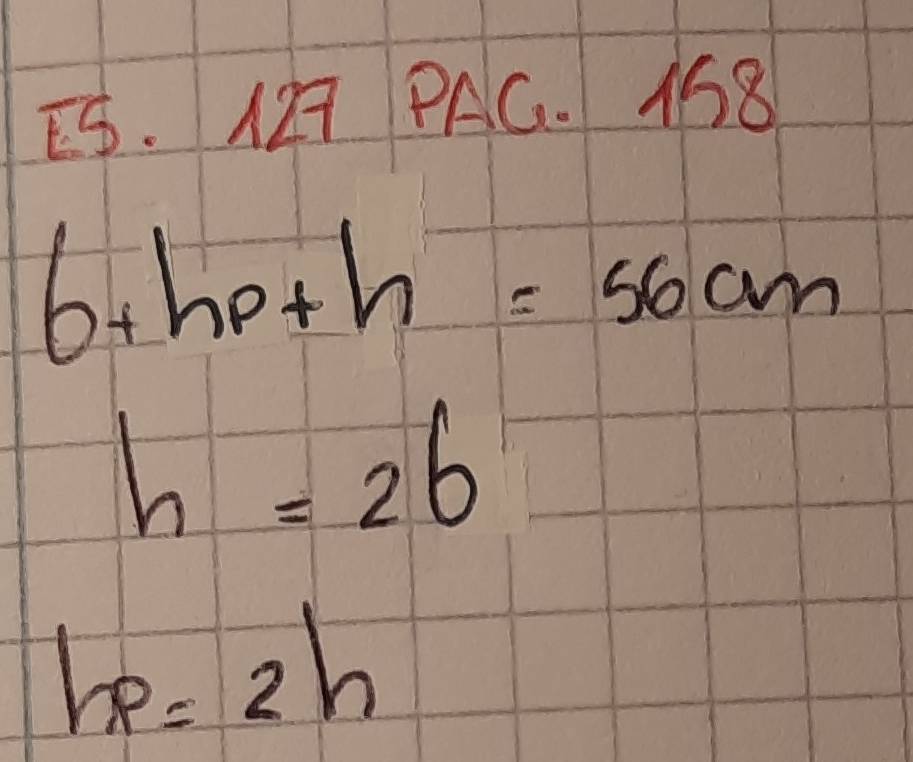 ES. 127 PAG. 158
b+hp+h = 56 cm
h = 2b
hp = 2h